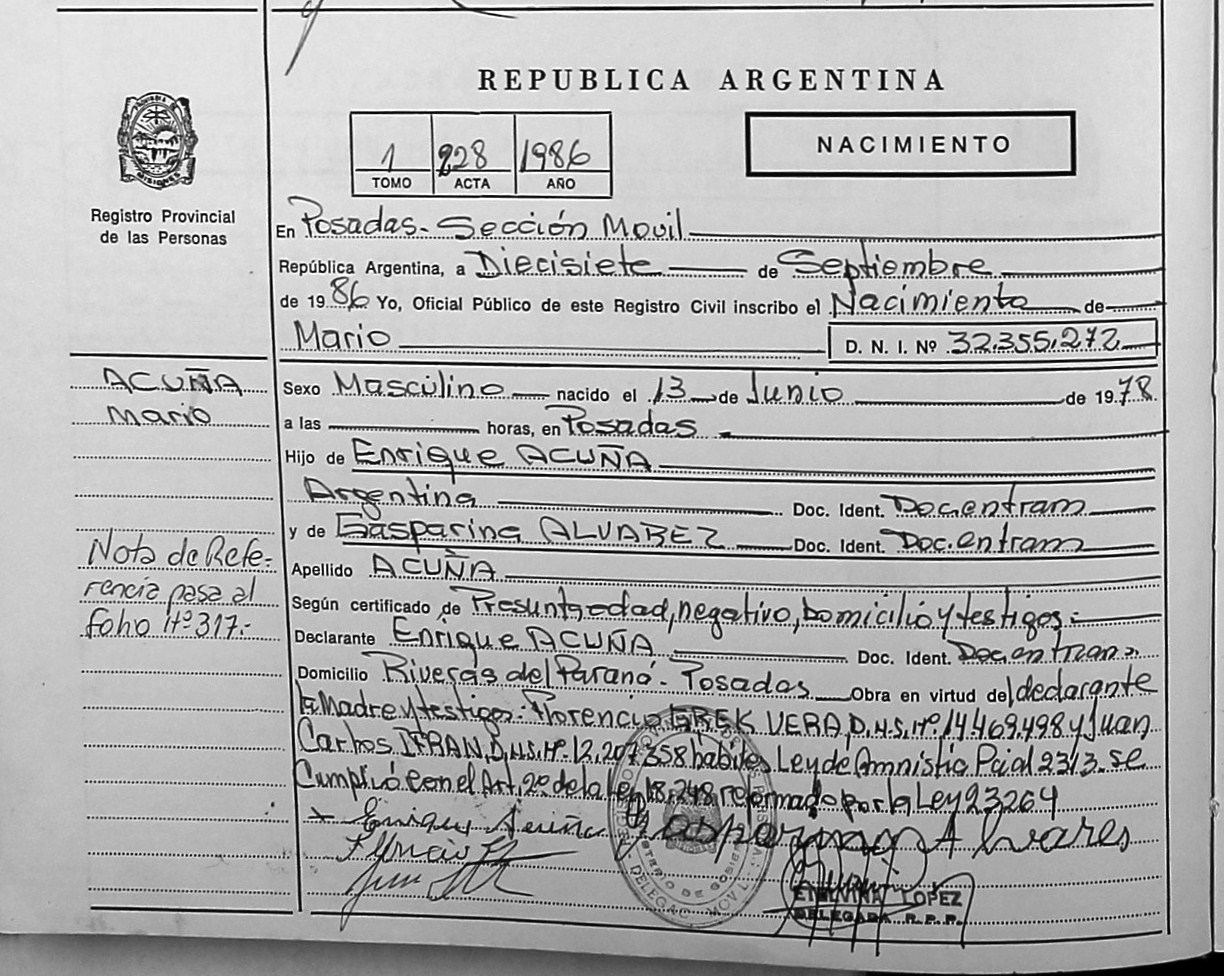 REPUBLICA ARGENTINA
1 228 1986
TOMO ACTA AÑO
NACIMIENTO
Registro Provincial
de las Personas
En Posadas - Sección Movil
República Argentina, a Diecisiete de Septiembre
de 1986 Yo, Oficial Público de este Registro Civil inscribo el Nacimiento de
Mario D. N. I. Nº 32.355.272
ACUÑA
Mario
Sexo Masculino nacido el 13 de Junio de 1978
a las horas, en Posadas
Hijo de Enrique ACUÑA
Argentina Doc. Ident. Doc.entram
y de Gasparina ALVAREZ Doc. Ident. Doc.entram
Apellido ACUÑA
Nota de Refe-
rencia pasa al
folio Nº 317.-
Según certificado de Presunta edad, negativo, domicilio y testigos.-
Declarante Enrique ACUÑA Doc. Ident. Doc.entram
Domicilio Riveras del Paraná - Posadas Obra en virtud de declarante
la Madre y testigos: Florencio GREK VERA, D.N.I. Nº 14.469.498 y Juan
Carlos IFRAN, D.N.I. Nº 12.207.358 habiles Ley de Amnistia Pcial 2313. se
Cumplió con el Art. 2º de la Ley 18.248 reformado por la Ley 23264
Enrique Acuña Gasparina Alvares
ETELVINA LOPEZ
DELEGADA R.P.P.